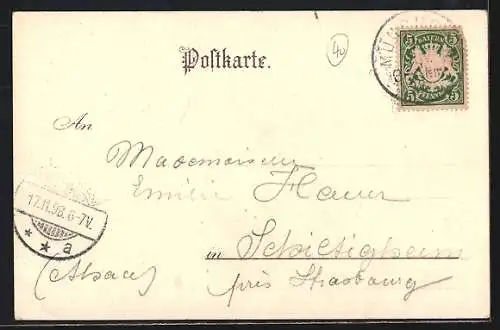 40
MÜN
5 BAYERN 5
5 PFENNIG 5
Postkarte.
An
Mademoiselle
Emilie Hauer
17.11.98. 6-7V.
* * a
in Schiltigheim
(Alsace) près Strasbourg